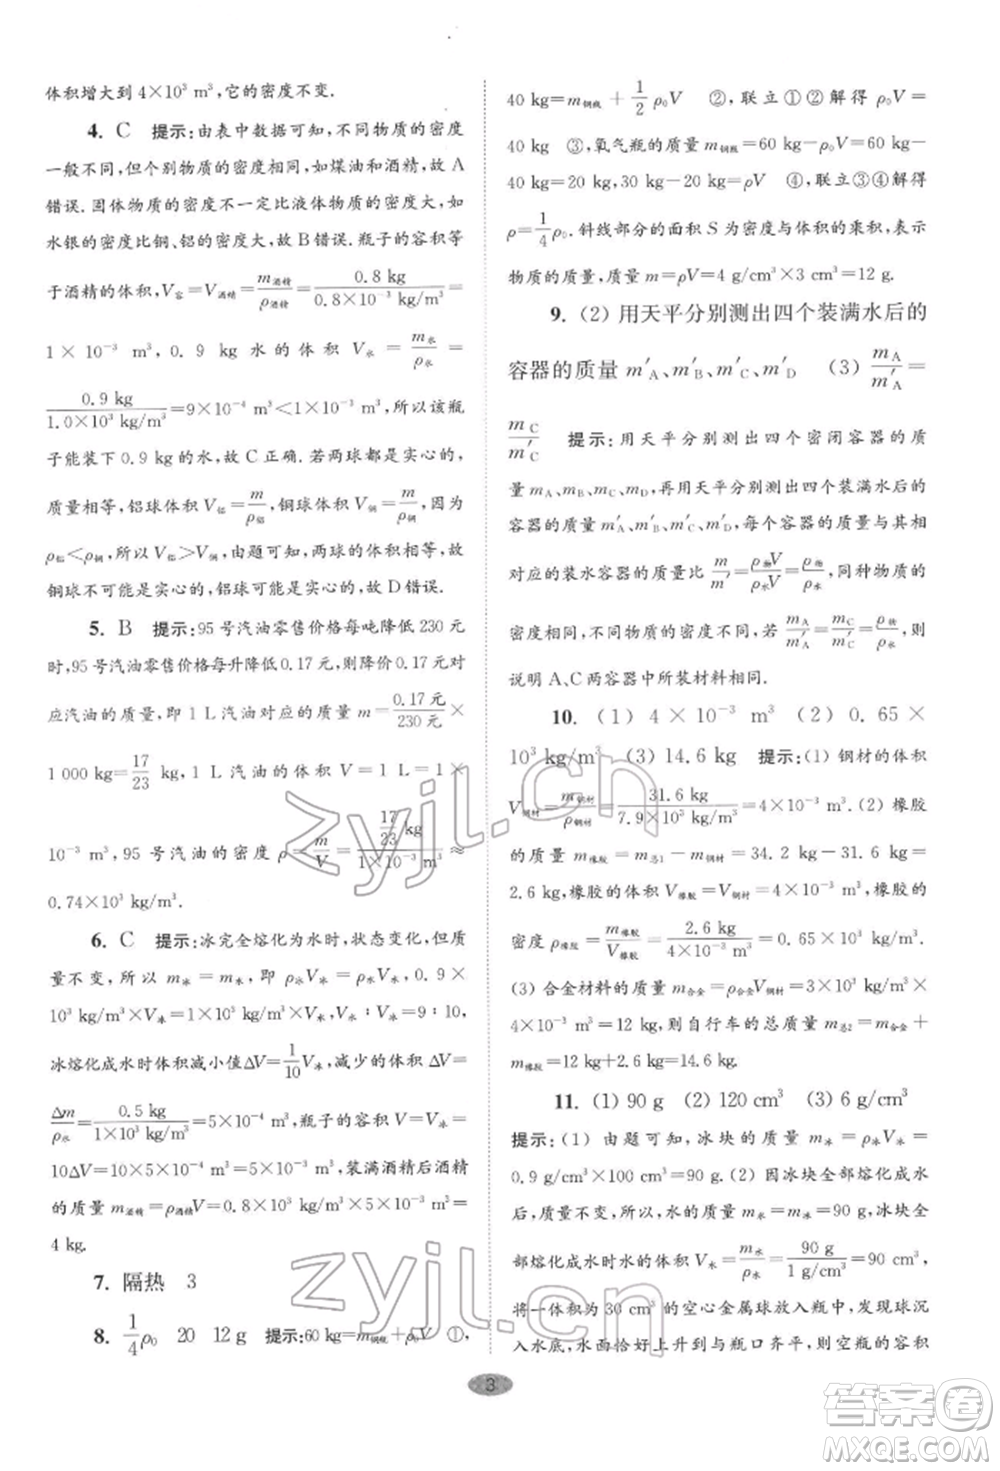 体积增大到 4×10³ m³,它的密度不变.
4. C 提示:由表中数据可知,不同物质的密度
一般不同,但个别物质的密度相同,如煤油和酒精,故 A
错误.固体物质的密度不一定比液体物质的密度大,如
水银的密度比铜、铝的密度大,故 B 错误.瓶子的容积等
于酒精的体积,V容=V酒精=m酒精/ρ酒精=0.8 kg/0.8×10³ kg/m³=
1×10⁻³ m³, 0.9 kg 水的体积 V水=m水/ρ水=
0.9 kg/1.0×10³ kg/m³=9×10⁻⁴ m³<1×10⁻³ m³,所以该瓶
子能装下 0.9 kg 的水,故 C 正确.若两球都是实心的,
质量相等,铝球体积 V铝=m/ρ铝,铜球体积 V铜=m/ρ铜,因为
ρ铝<ρ铜,所以 V铝>V铜,由题可知,两球的体积相等,故
铜球不可能是实心的,铝球可能是实心的,故 D 错误.
5. B 提示:95 号汽油零售价格每吨降低 230 元
时,95 号汽油零售价格每升降低 0.17 元,则降低 0.17 元对
应汽油的质量,即 1 L 汽油对应的质量 m=0.17 元/230 元×
1 000 kg=17/23 kg,1 L 汽油的体积 V=1 L=1×
10⁻³ m³,95 号汽油的密度 ρ=m/V=17/23 kg/1×10⁻³ m³≈
0.74×10³ kg/m³.
6. C 提示:冰完全熔化为水时,状态变化,但质
量不变,所以 m冰=m水,即 ρ冰V冰=ρ水V水,0.9×
10³ kg/m³×V冰=1×10³ kg/m³×V水,V水:V冰=9:10,
冰熔化成水时体积减小值ΔV=1/10V冰,减少的体积 ΔV=
Δm/ρ水=0.5 kg/1×10³ kg/m³=5×10⁻⁴ m³,瓶子的容积 V=V冰=
10ΔV=10×5×10⁻⁴ m³=5×10⁻³ m³,装满酒精后酒精
的质量 m酒精=ρ酒精V=0.8×10³ kg/m³×5×10⁻³ m³=
4 kg.
7. 隔热 3
8. 1/4ρ₀ 20 12 g 提示:60 kg=m钢瓶+ρ₀V ①,
40 kg=m钢瓶+1/2ρ₀V ②,联立①②解得 ρ₀V=
40 kg ③,氧气瓶的质量 m钢瓶=60 kg-ρ₀V=60 kg-
40 kg=20 kg,30 kg-20 kg=ρV ④,联立③④解得
ρ=1/4ρ₀.斜线部分的面积 S 为密度与体积的乘积,表示
物质的质量,质量 m=ρV=4 g/cm³×3 cm³=12 g.
9. (2) 用天平分别测出四个装满水后的
容器的质量 m′A、m′B、m′C、m′D (3) mA/m′A=
mC/m′C 提示:用天平分别测出四个密闭容器的质
量 mA、mB、mC、mD,再用天平分别测出四个装满水后的
容器的质量 m′A、m′B、m′C、m′D,每个容器的质量与其相
对应的装水容器的质量比 m/m′=ρ物V/ρ水V=ρ物/ρ水,同种物质的
密度相同,不同物质的密度一般不同,若 mA/m′A=mC/m′C=ρ物/ρ水,则
说明 A、C 两容器中所装材料相同.
10. (1) 4×10⁻³ m³ (2) 0.65×
10³ kg/m³ (3) 14.6 kg 提示:(1) 钢材的体积
V钢材=m钢材/ρ钢材=31.6 kg/7.9×10³ kg/m³=4×10⁻³ m³.(2) 橡胶
的质量 m橡胶=m总1-m钢材=34.2 kg-31.6 kg=
2.6 kg,橡胶的体积 V橡胶=V钢材=4×10⁻³ m³,橡胶的
密度 ρ橡胶=m橡胶/V橡胶=2.6 kg/4×10⁻³ m³=0.65×10³ kg/m³.
(3) 合金材料的质量 m合金=ρ合金V钢材=3×10³ kg/m³×
4×10⁻³ m³=12 kg,则自行车的总质量 m总2=m合金+
m橡胶=12 kg+2.6 kg=14.6 kg.
11. (1) 90 g (2) 120 cm³ (3) 6 g/cm³
提示:(1) 由题可知,冰块的质量 m冰=ρ冰V冰=
0.9 g/cm³×100 cm³=90 g.(2) 因冰块全部熔化成水
后,质量不变,所以,水的质量 m水=m冰=90 g,冰块全
部熔化成水时水的体积 V水=m水/ρ水=90 g/1 g/cm³=90 cm³,
将一体积为 30 cm³ 的空心金属球放入瓶中,发现球沉
入水底,水面恰好上升到与瓶口齐平,则整个瓶的容积
3
zyjl.cn
zyjl.cn
答案圈
MXQE.COM